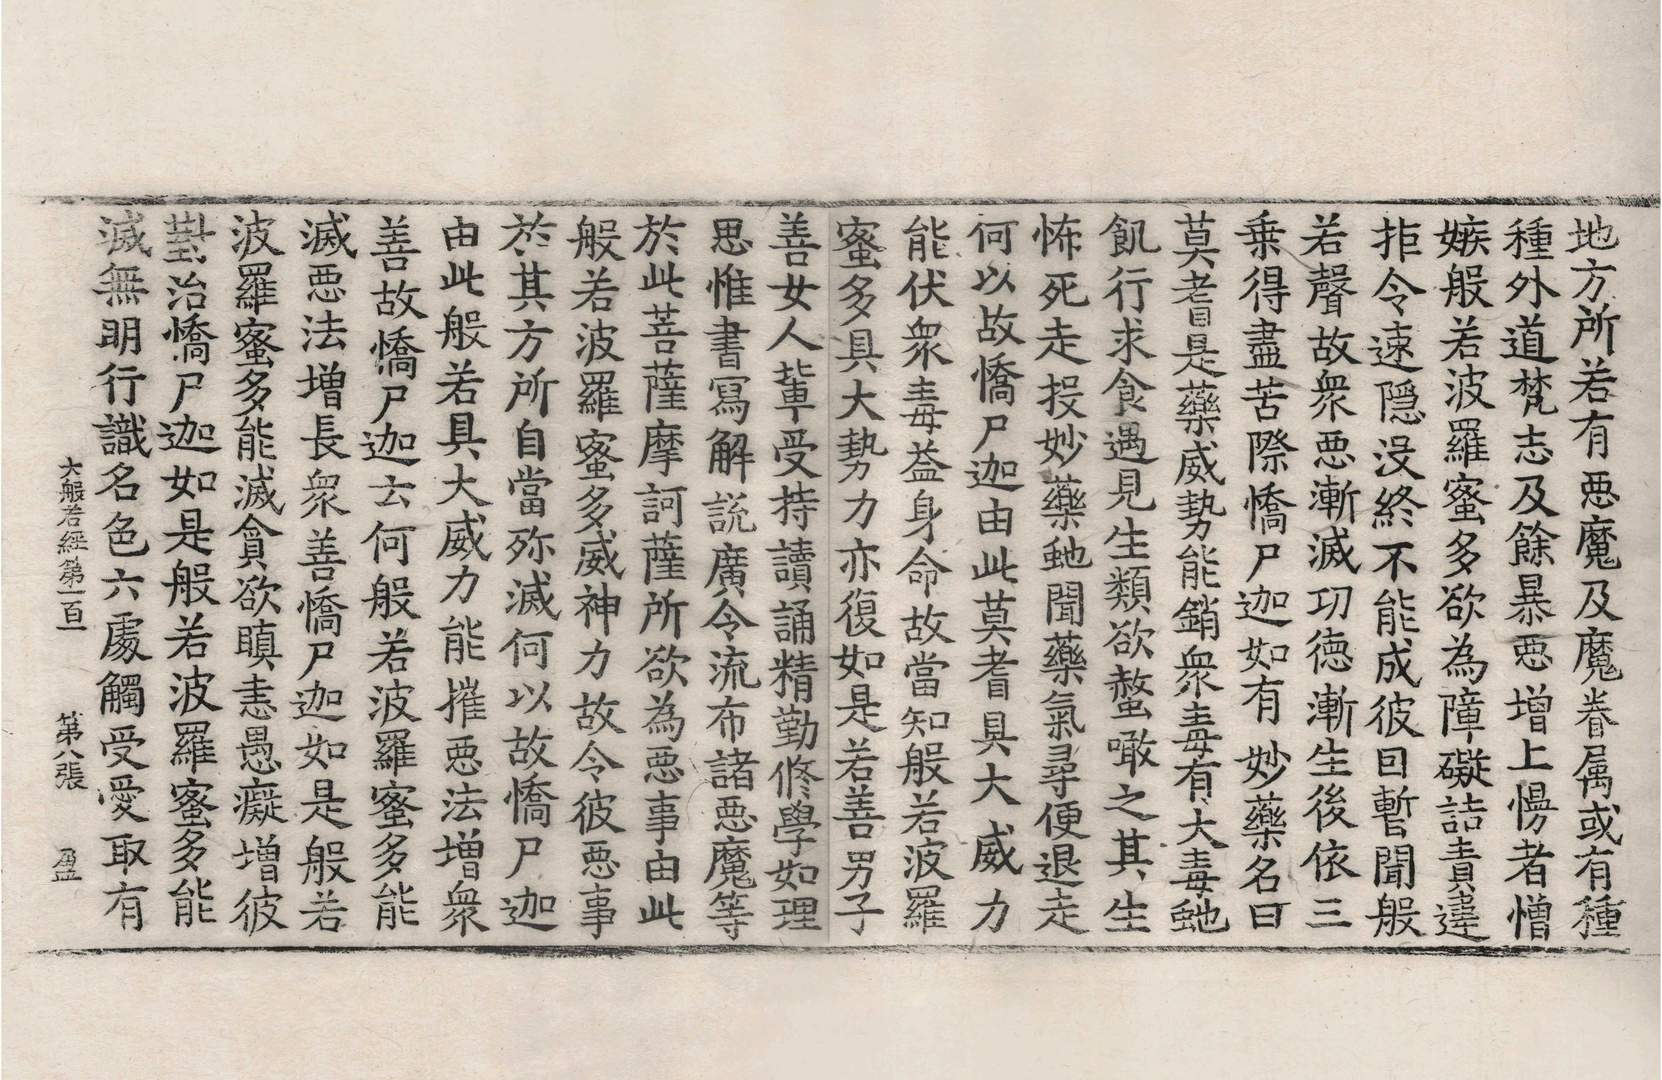 地方所若有惡魔及魔眷属或有種
種外道梵志及餘暴惡增上慢者憎
嫉般若波羅蜜多欲為障礙詰責違
拒令速隱没終不能成彼回暫聞般
若聲故衆惡漸滅㓛德漸生後依三
乗得盡苦際憍尸迦如有妙藥名曰
莫耆是藥威勢能銷衆毒有大毒虵
飢行求食遇見生類欲螫噉之其生
怖死走投妙藥虵聞藥氣尋便退走
何以故憍尸迦由此莫耆具大威力
能伏衆毒益身命故當知般若波羅
蜜多具大勢力亦復如是若善男子
善女人軰受持讀誦精勤修學如理
思惟書寫解説廣令流布諸惡魔等
於此菩薩摩訶薩所欲為惡事由此
般若波羅蜜多威神力故令彼惡事
於其方所自當殄滅何以故憍尸迦
由此般若具大威力能摧惡法增衆
善故憍尸迦云何般若波羅蜜多能
滅惡法增長衆善憍尸迦如是般若
波羅蜜多能滅貪欲瞋恚愚癡增彼
對治憍尸迦如是般若波羅蜜多能
滅無明行識名色六處觸受愛取有
大般若經第一百一 第八張 盈